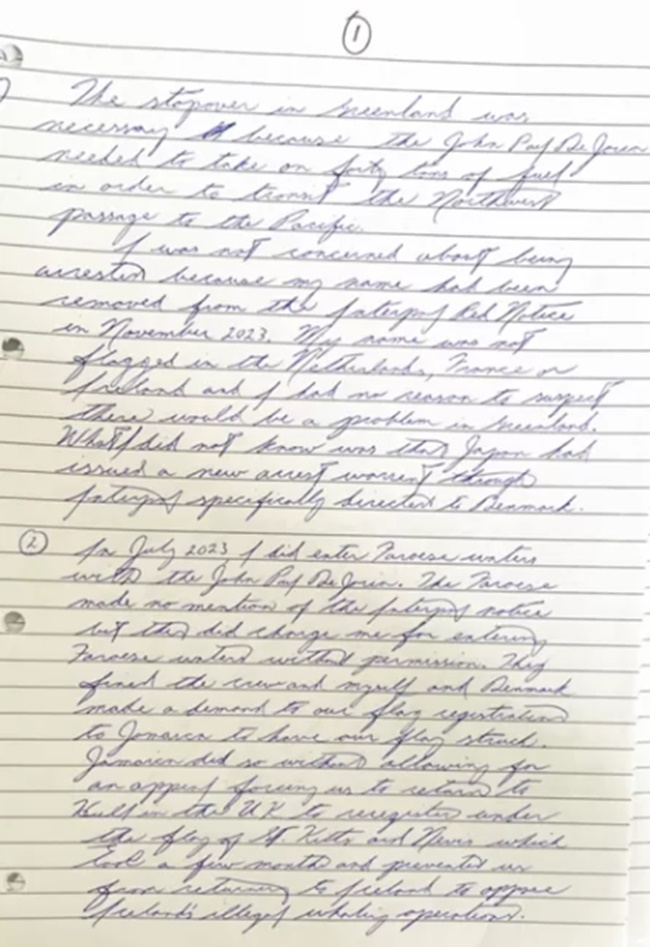 1
The stopover in Greenland was
necessary because the John Paul De Joria
needed to take on forty tons of fuel
in order to transit the Northwest
passage to the Pacific.
I was not concerned about being
arrested because my name had been
removed from the Interpol Red Notice
in November 2023. My name was not
flagged in the Netherlands, France or
Ireland and I had no reason to suspect
there would be a problem in Greenland.
What I did not know was that Japan had
issued a new arrest warrent through
Interpol specifically directed to Denmark.
2 In July 2023 I did enter Faroese waters
with the John Paul De Joria. The Faroese
made no mention of the Interpol notice
but they did charge me for entering
Faroese waters without permission. They
fined the crew and myself and Denmark
made a demand to our flag registration
to Jamaica to have our flag struck.
Jamaica did so without allowing for
an appeal forcing us to return to
Hull in the UK to reregister under
the flag of St. Kitts and Nevis which
took a few months and prevented us
from returning to Iceland to oppose
Iceland's illegal whaling operations.